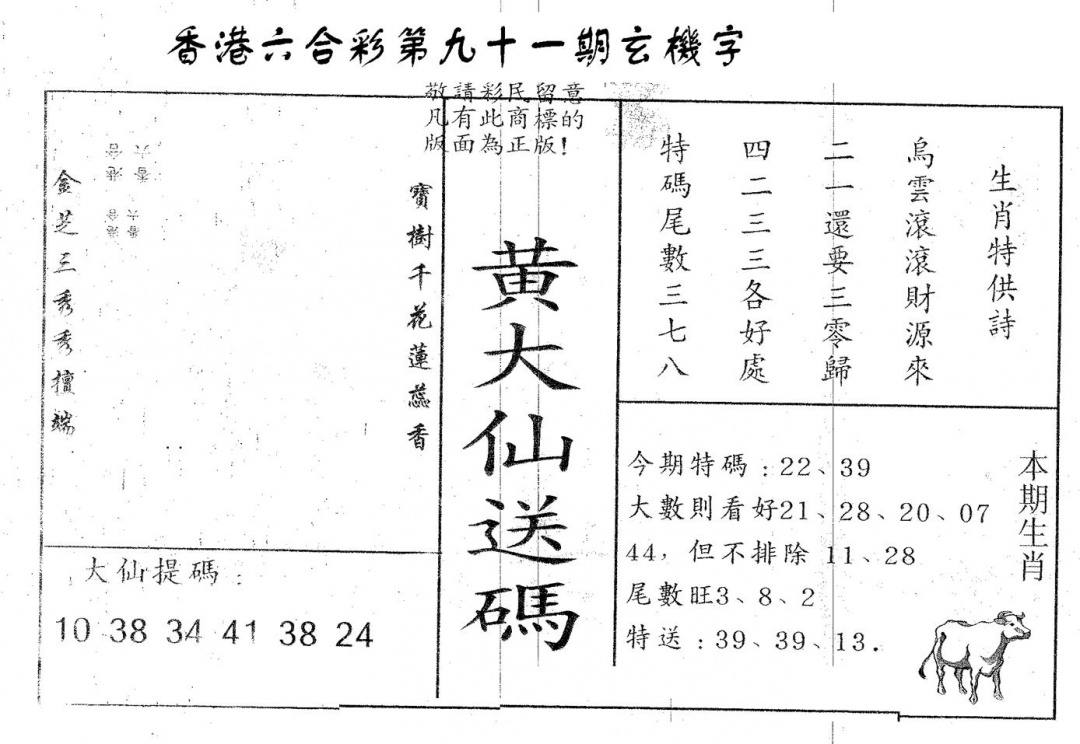 香港六合彩第九十一期玄機字
敬請彩民留意
凡有此商標的
版面為正版!
生肖特供詩
烏雲滾滾財源來
二一還要三零歸
四二三三各好處
特碼尾數三七八
黃大仙送碼
寶樹千花蓮蕊香
金芝三秀秀擅端
本期生肖
今期特碼:22、39
大數則看好21、28、20、07
44,但不排除 11、28
尾數旺3、8、2
特送:39、39、13.
大仙提碼:
10 38 34 41 38 24